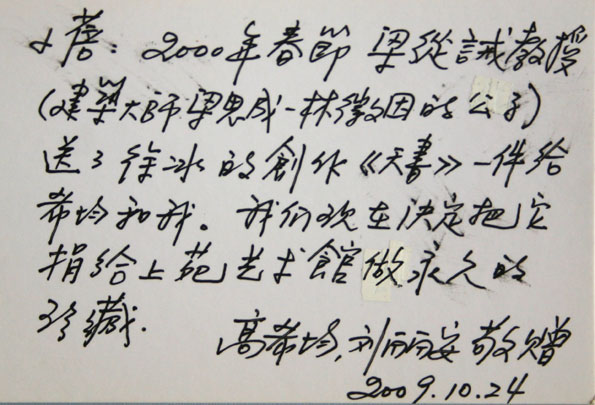 小蓓：2000年春節 梁從誡教授
（建築大師梁思成-林徽因的公子）
送了徐冰的創作《天書》一件給
希均和我。我们现在决定把它
捐給上苑艺术館做永久的
珍藏.
高希均，刘丽安敬赠
2009.10.24